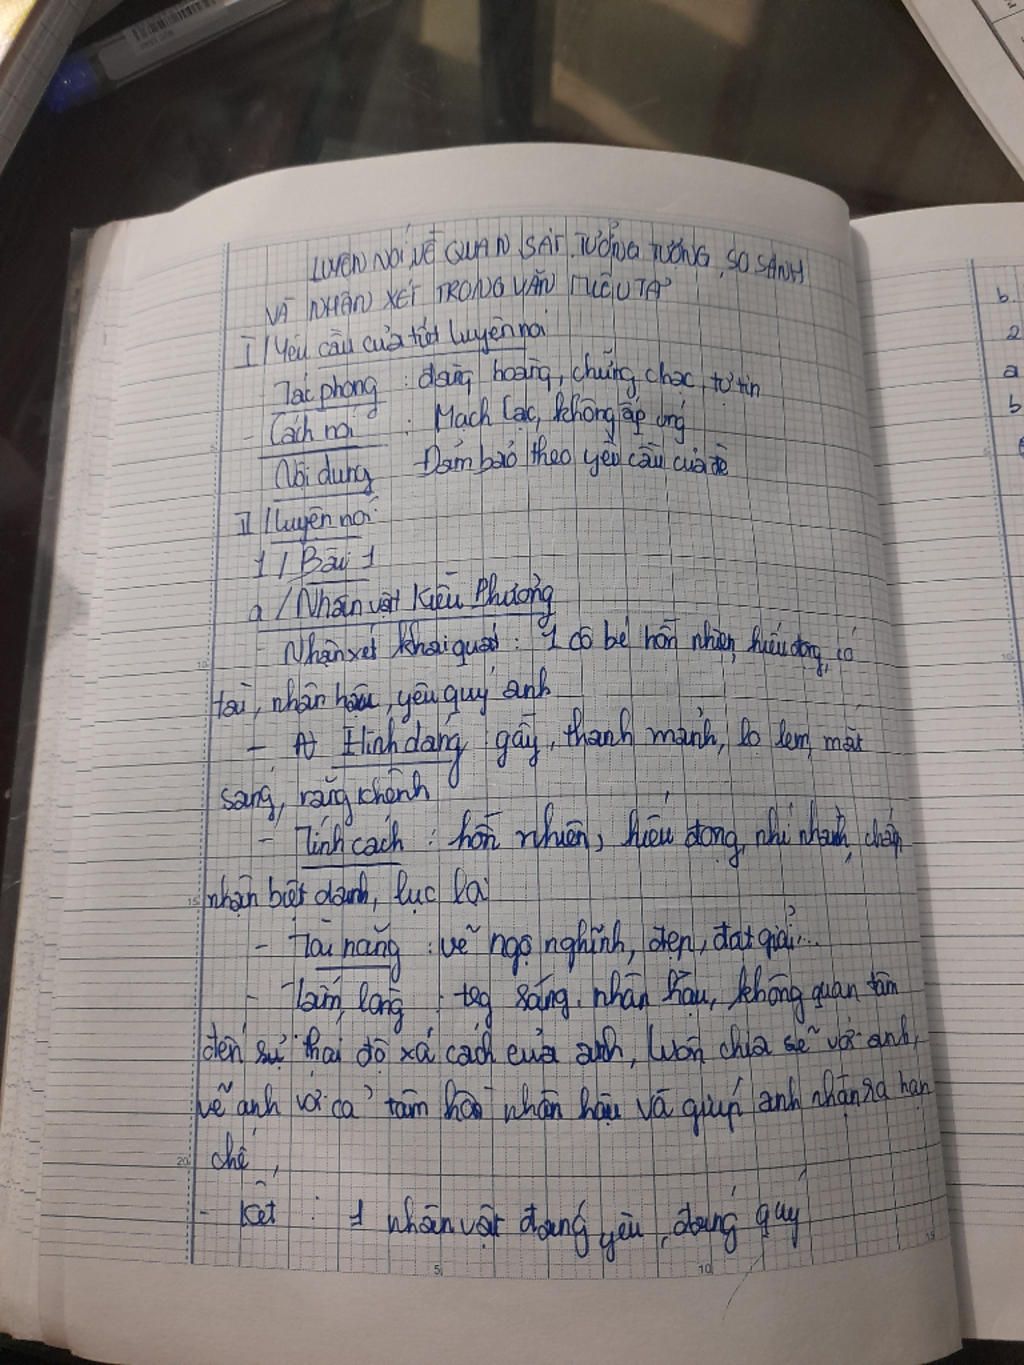 LUYỆN NÓI VỀ QUAN SÁT, TƯỞNG TƯỢNG, SO SÁNH
VÀ NHẬN XÉT TRONG VĂN MIÊU TẢ
I / Yêu cầu của tiết luyện nói
Tác phong : đàng hoàng, chững chạc, tự tin
- Cách nói : Mạch lạc, không ấp úng
Nội dung Đảm bảo theo yêu cầu của đề
II / luyện nói
1 / Bài 1
a / Nhân vật Kiều Phương
- Nhận xét khái quát : 1 cô bé hồn nhiên, hiếu động, có
tài, nhân hậu, yêu quý anh
- Hình dáng gầy, thanh mảnh, lọ lem, mắt
sáng, răng khểnh
- Tính cách : hồn nhiên, hiếu động, nhí nhảnh, chấp
nhận biệt danh, lục lọi
- Tài năng : vẽ ngộ nghĩnh, đẹp, đạt giải...
- Tấm lòng : sáng, nhân hậu, không quan tâm
đến sự thái độ xa cách của anh, luôn chia sẻ với anh,
vẽ anh với cả tâm hồn nhân hậu và giúp anh nhận ra hạn
chế,
- Kết : 1 nhân vật đáng yêu, đáng quý
5
10
15
20
5
10
15
b.
2
a
b